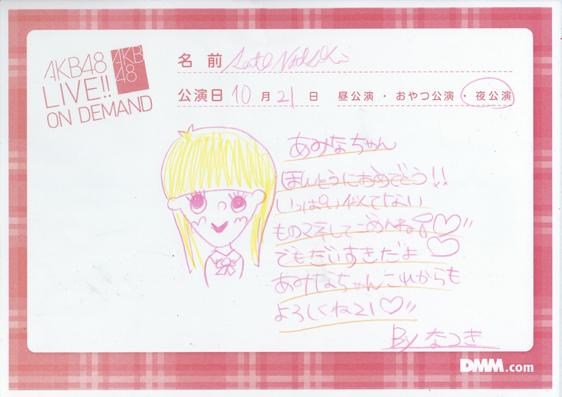 AKB48
LIVE!!
ON DEMAND
AKB
48
名前 Sato Natsuki
公演日 10月21日 昼公演・おやつ公演・夜公演
あみなちゃん
ほんとうにおめでとう!!
いっぱい似てない
ものマネしてごめんね
でもだいすきだよ
あみなちゃんこれからも
よろしくね21
By なつき
DMM.com